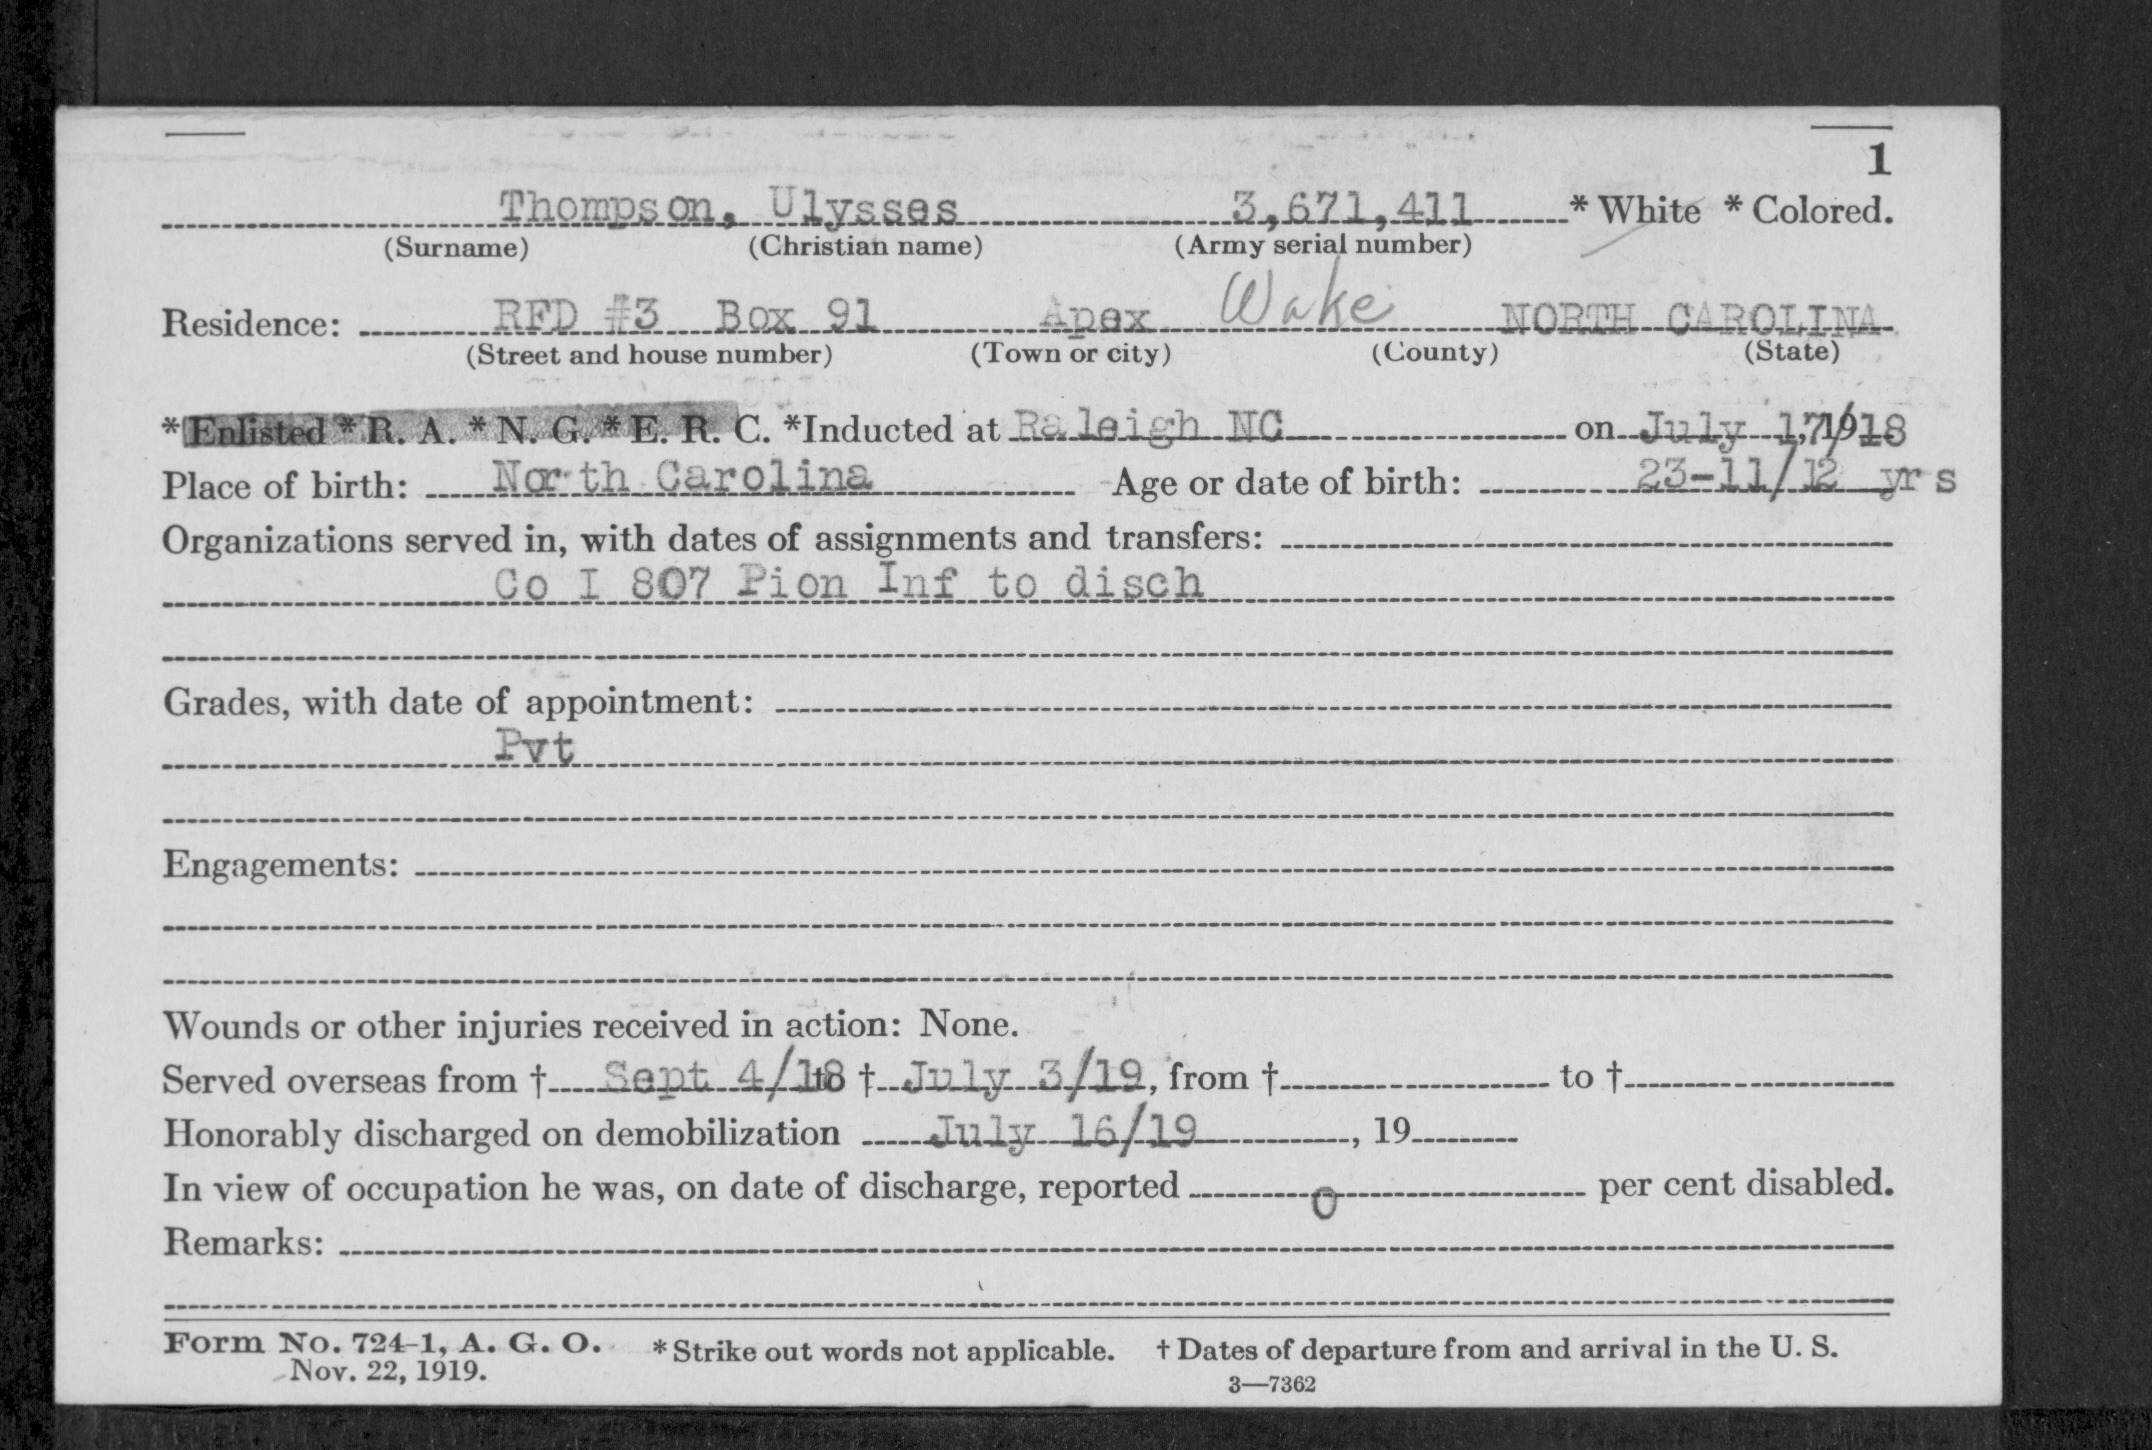 1
Thompson, Ulysses 3,671,411 * White * Colored.
(Surname) (Christian name) (Army serial number)
Residence: RFD #3 Box 91 Apex Wake NORTH CAROLINA
(Street and house number) (Town or city) (County) (State)
*Enlisted *R. A. *N. G. *E. R. C. *Inducted at Raleigh NC on July 17/1918
Place of birth: North Carolina Age or date of birth: 23-11/12 yrs
Organizations served in, with dates of assignments and transfers:
Co I 807 Pion Inf to disch
Grades, with date of appointment:
Pvt
Engagements:
Wounds or other injuries received in action: None.
Served overseas from † Sept 4/18 to † July 3/19, from † to †
Honorably discharged on demobilization July 16/19, 19
In view of occupation he was, on date of discharge, reported 0 per cent disabled.
Remarks:
Form No. 724-1, A. G. O. *Strike out words not applicable. † Dates of departure from and arrival in the U. S.
Nov. 22, 1919.
3—7362